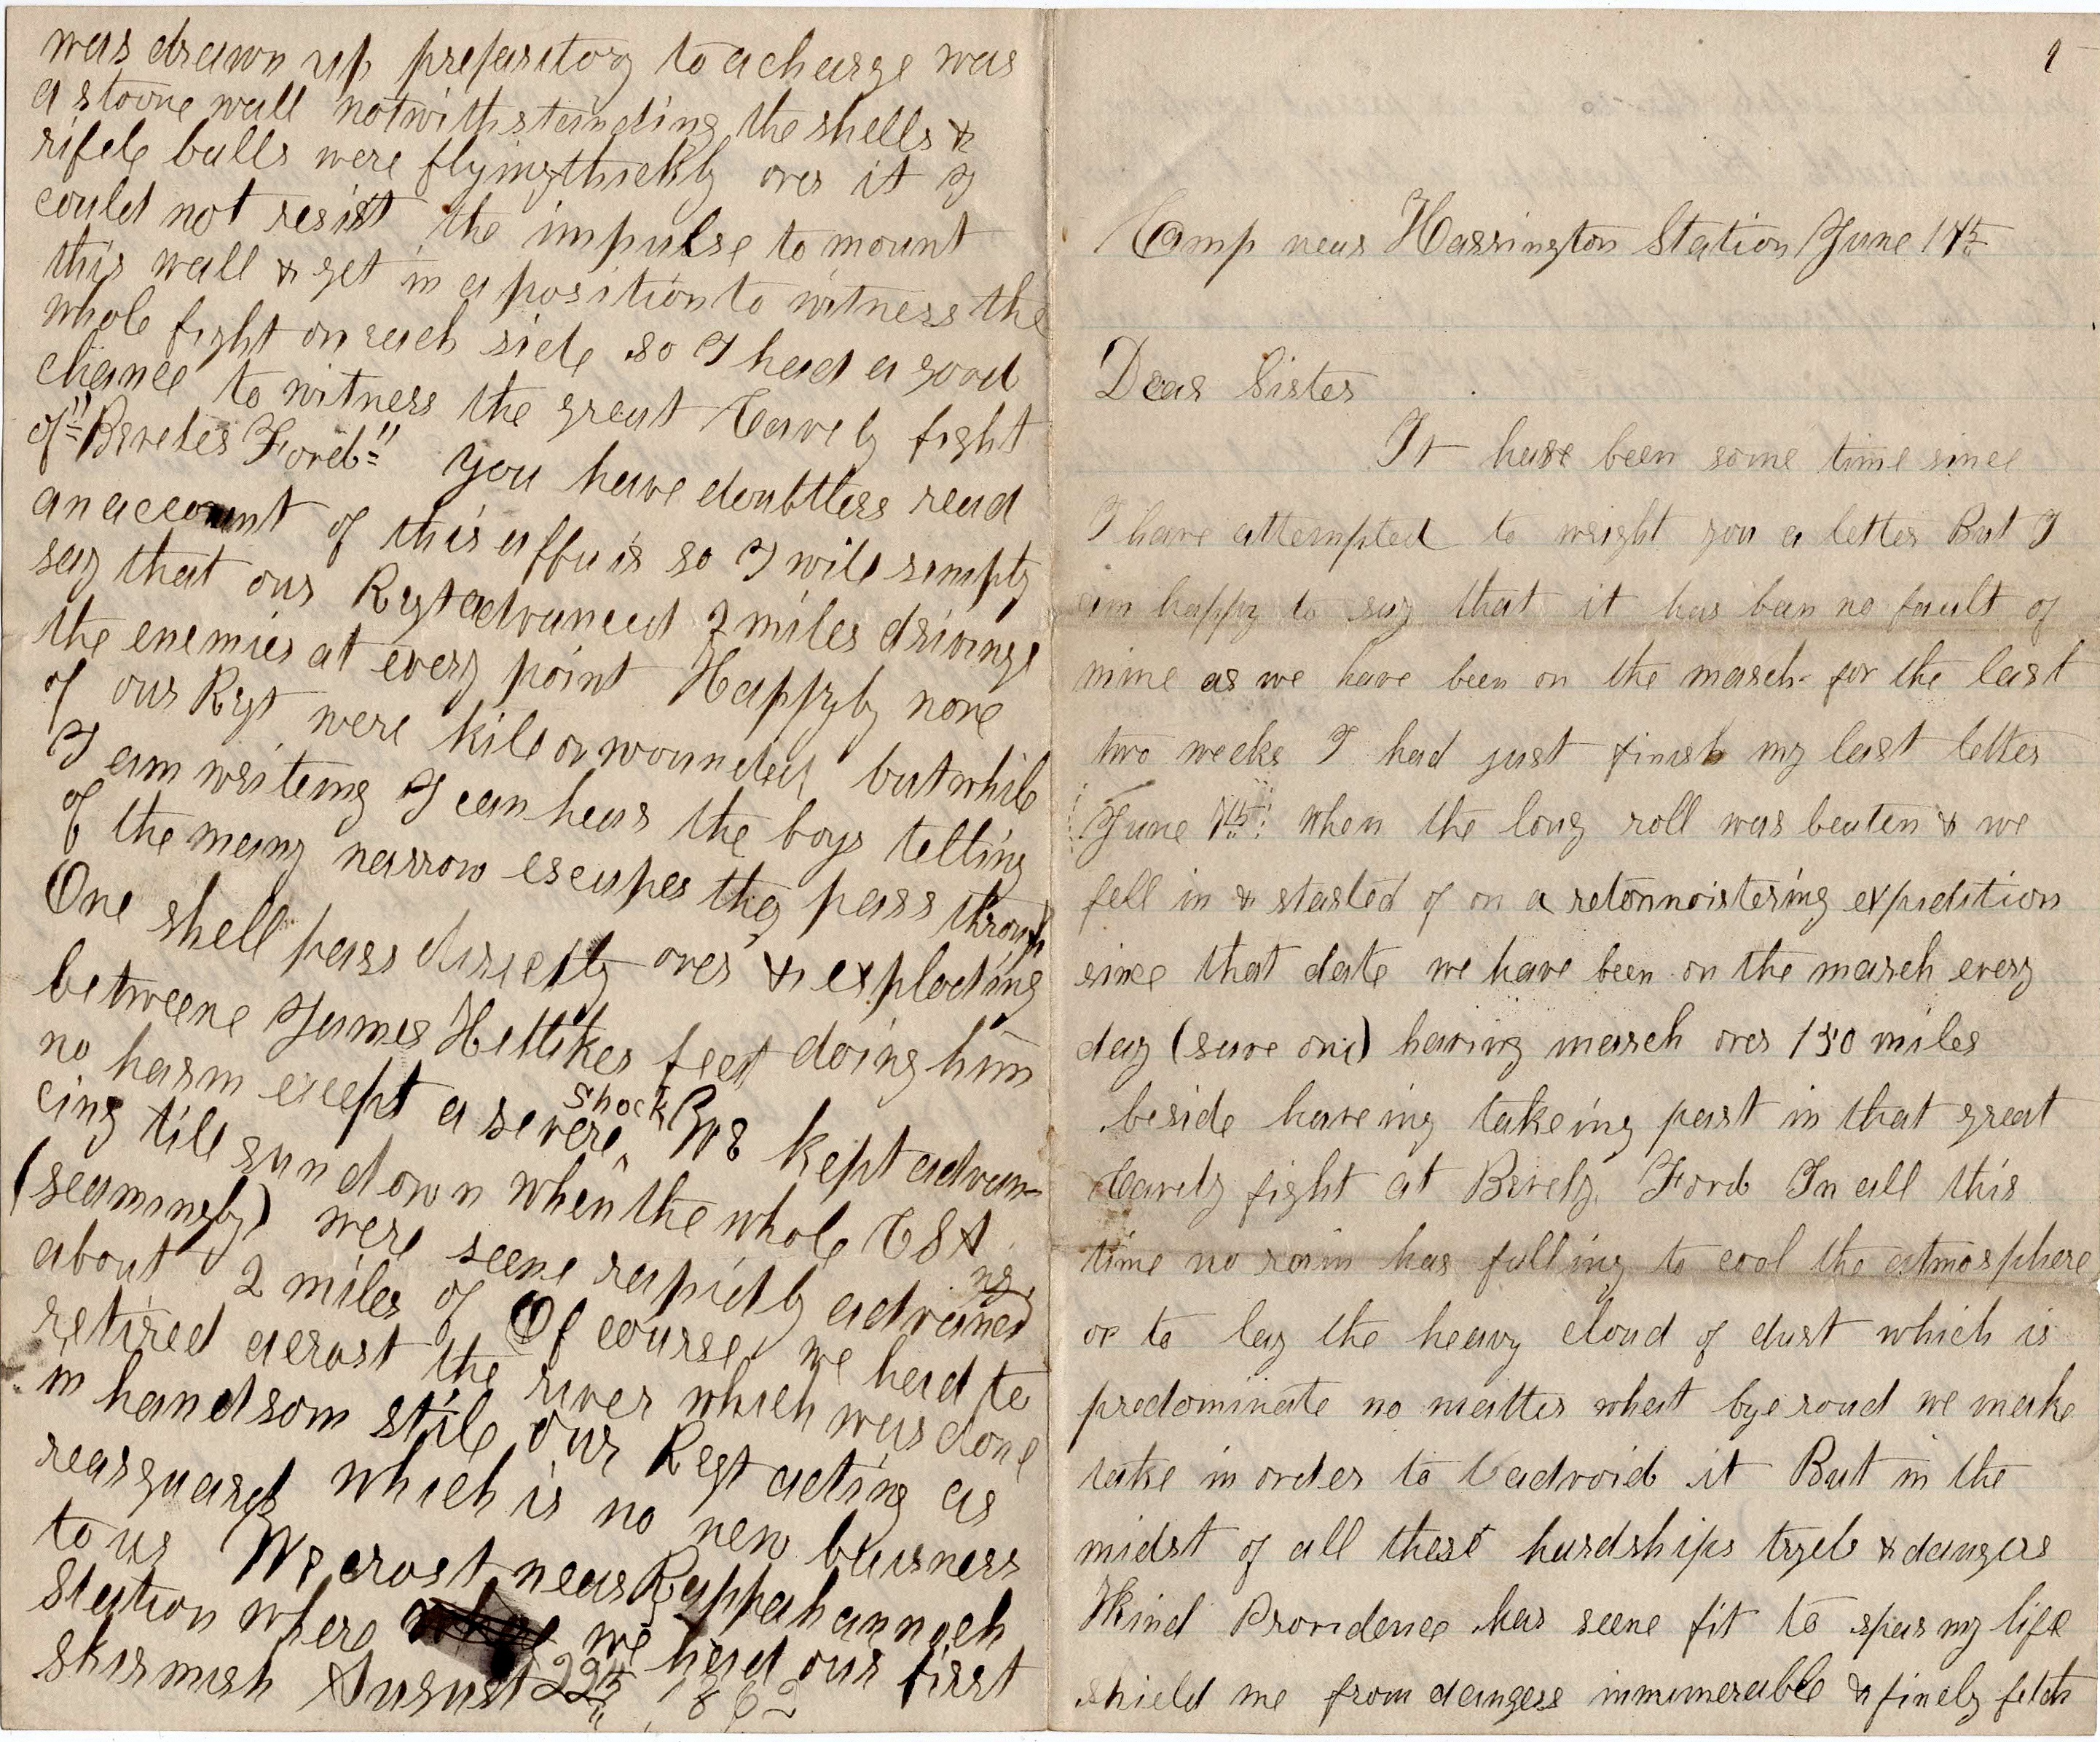 was drawn up preparitory to a charge was
a stoone wall notwithstainding the shells &
rifele balls were flying thickly over it I
could not resist the impulse to mount
this wall & get in a position to witness the
whole fight on each side so I had a good
chance to witness the great Cavely fight
of "Bevelis Ford" you have doubtless read
an account of this affair so I will simply
say that our Regt advanced 2 miles drivinge
the enemies at every point Happyly none
of our Regt were kile or wounded but while
I am writeing I can hear the boys telling
of the meany narrow escapes they pass through
One shell pass directly over & exploding
betweene James Hettikes feet doing him
no harm except a severe shock We kept advan-
cing till sundown when the whole CSA
(seamingly) were seene rapidly advancing
about 2 miles of Of course we had to
retired acrost the river which was done
in handsom stile our Regt acting as
rearguard which is no new buisness
to us We crost near Rappahannoch
Station where we had our first
skirmish August 22th 1862
1
Camp near Harrington Station June 14th
Dear Sister
It have been some time since
I have attempted to wright you a letter But I
am happy to say that it has ben no fault of
mine as we have been on the march for the last
two weeks I had just finish my last letter
June 7th when the long roll was beaten & we
fell in & started of on a retonnoistering expidition
since that date we have been on the march every
day (save one) having march over 150 miles
beside haveing takeing part in that great
Cavely fight at Bevely Ford In all this
time no rain has falling to cool the atmosphere
or to lay the heavy cloud of dust which is
predominate no matter what bye road we make
take in order to advoid it But in the
midst of all these hardships tryels & dangers
Kind Providence has seene fit to spar my life
shield me from dangers innumerable & finely fetch